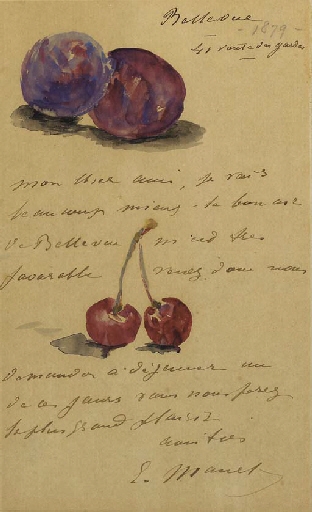 Bellevue
- 1879 -
41 route des gardes
mon cher ami, je vais
beaucoup mieux. le bon air
de Bellevue m'est très
favorable venez donc nous
demander à déjeuner un
de ces jours vous nous ferez
le plus grand plaisir
E. Manet